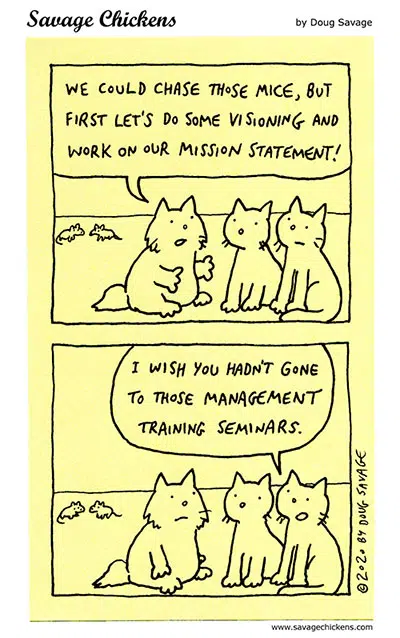 Savage Chickens
by Doug Savage
WE COULD CHASE THOSE MICE, BUT
FIRST LET'S DO SOME VISIONING AND
WORK ON OUR MISSION STATEMENT!
I WISH YOU HADN'T GONE
TO THOSE MANAGEMENT
TRAINING SEMINARS.
©2020 BY DOUG SAVAGE
www.savagechickens.com